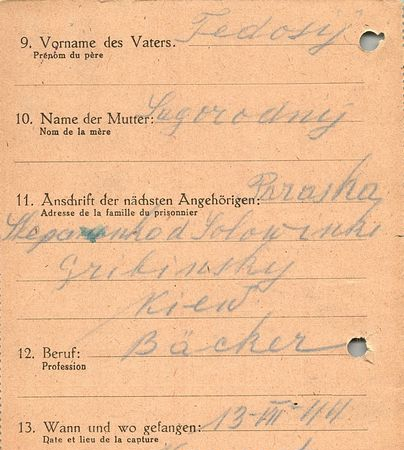 9. Vorname des Vaters. Fedosij
Prénom du père
10. Name der Mutter: Sagorodnij
Nom de la mère
11. Anschrift der nächsten Angehörigen: Paraska
Adresse de la famille du prisonnier
Stepanenko d Solowinki
Gribinsky
Kiew
12. Beruf: Bäcker
Profession
13. Wann und wo gefangen: 13-VII-44
Date et lieu de la capture